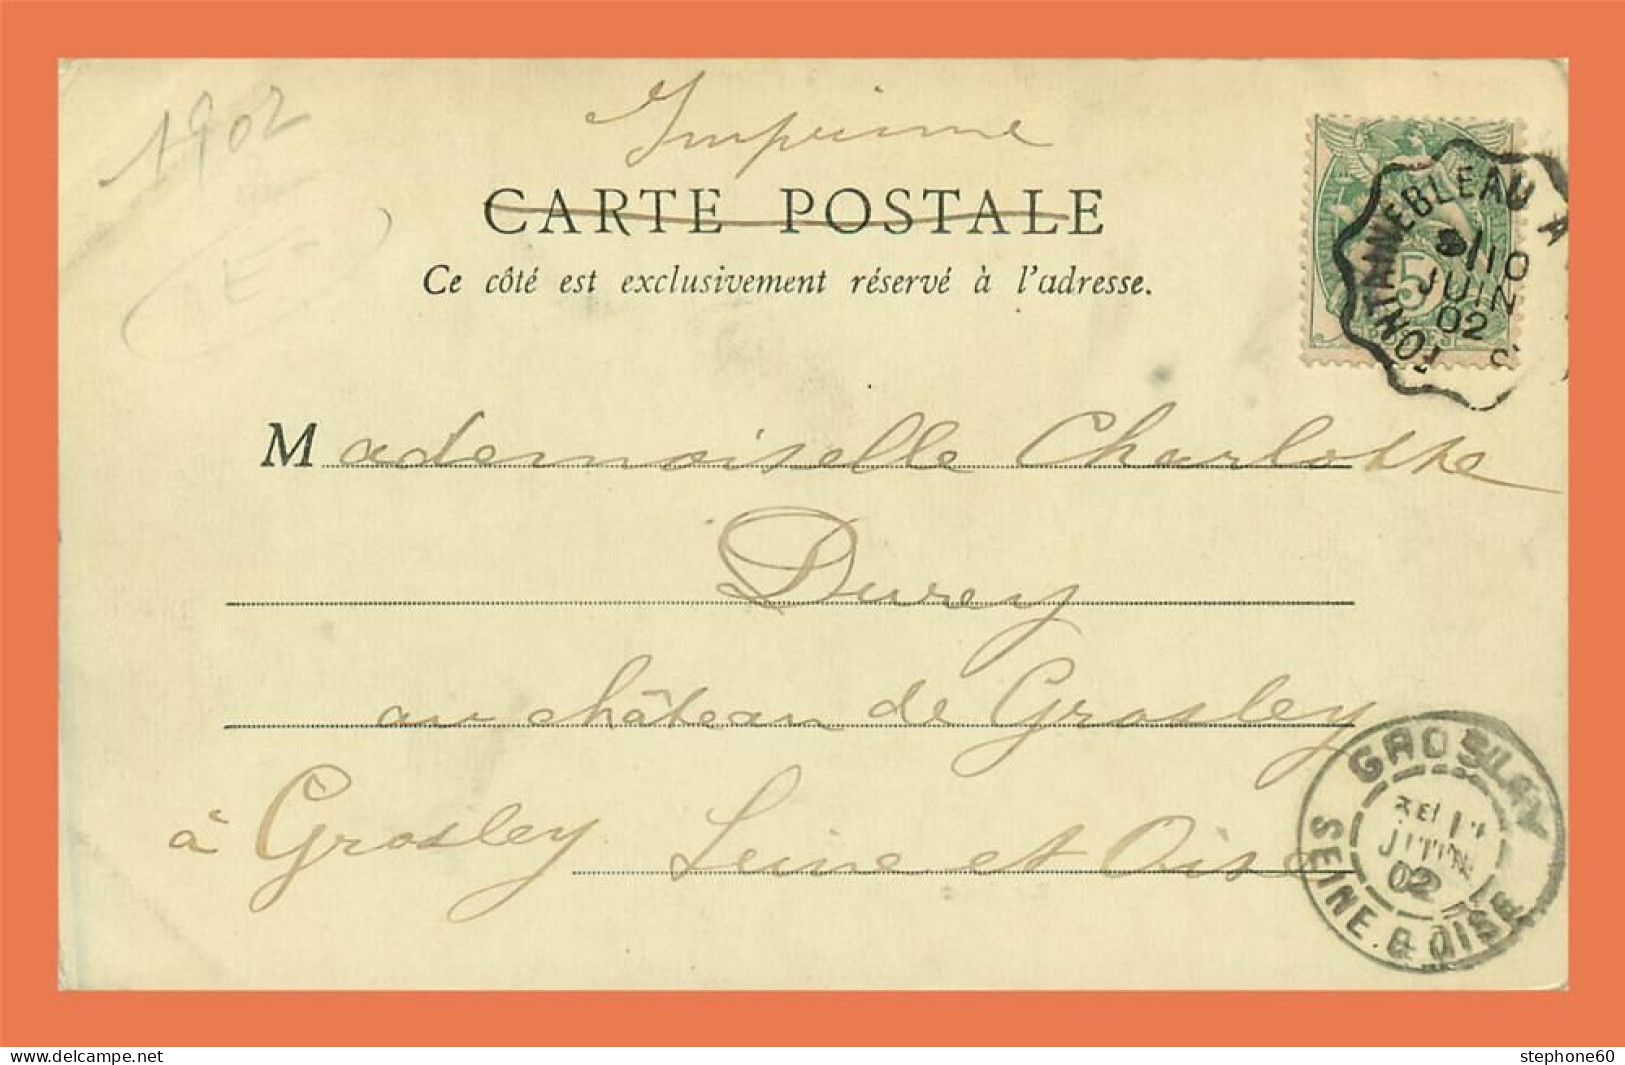 1902
E
Imprimé
CARTE POSTALE
Ce côté est exclusivement réservé à l'adresse.
FONTAINEBLEAU A
10
JUIN
02
5
Mademoiselle Charlotte
Durey
au château de Grosley
à Grosley Seine et Oise
GROSLAY
JUIN
02
SEINE & OISE
www.delcampe.net
stephone60